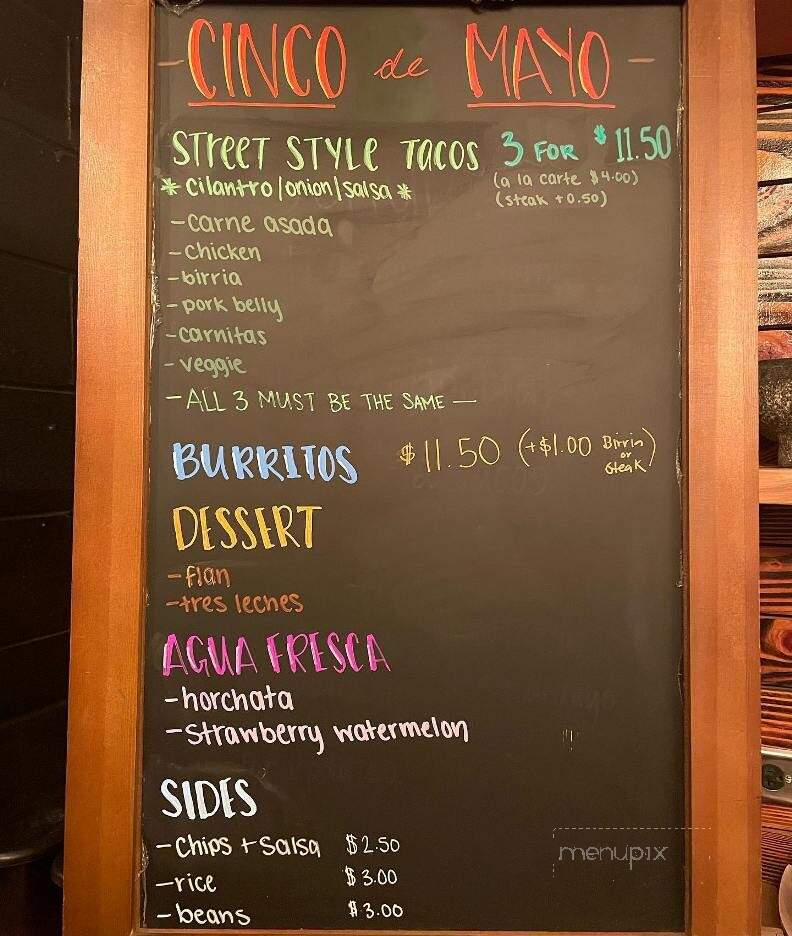 -CINCO de MAYO-
Street STYLE Tacos 3 FOR $11.50
* cilantro/onion/salsa * (a la carte $4.00)
(steak +0.50)
-carne asada
-chicken
-birria
-pork belly
-carnitas
-veggie
-ALL 3 MUST BE THE SAME-
BURRITOS $11.50 (+$1.00 Birria or Steak)
DESSERT
-flan
-tres leches
AGUA FRESCA
-horchata
-strawberry watermelon
SIDES
-chips + salsa $2.50
-rice $3.00
-beans $3.00
menupix